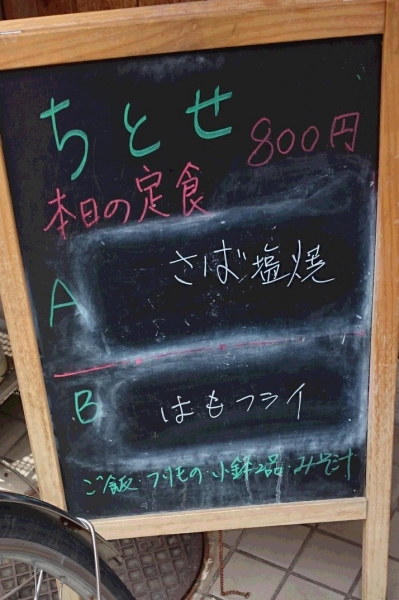 ちとせ
800円
本日の定食
A さば塩焼
B はもフライ
ご飯・つけもの・小鉢2品・みそ汁